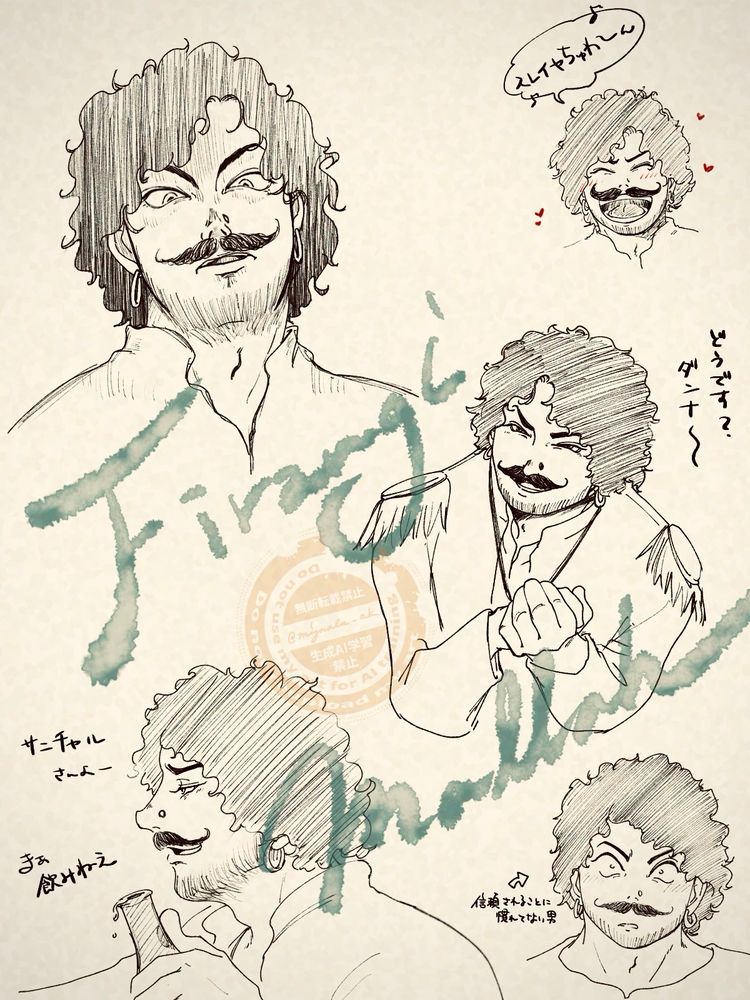 スレイヤちゅわ〜ん♪
どうです?
ダンナ〜
Firangi
無断転載禁止
生成AI学習
禁止
サニチャル
さんよー
まぁ
飲みねえ
信頼されることに
慣れてない男